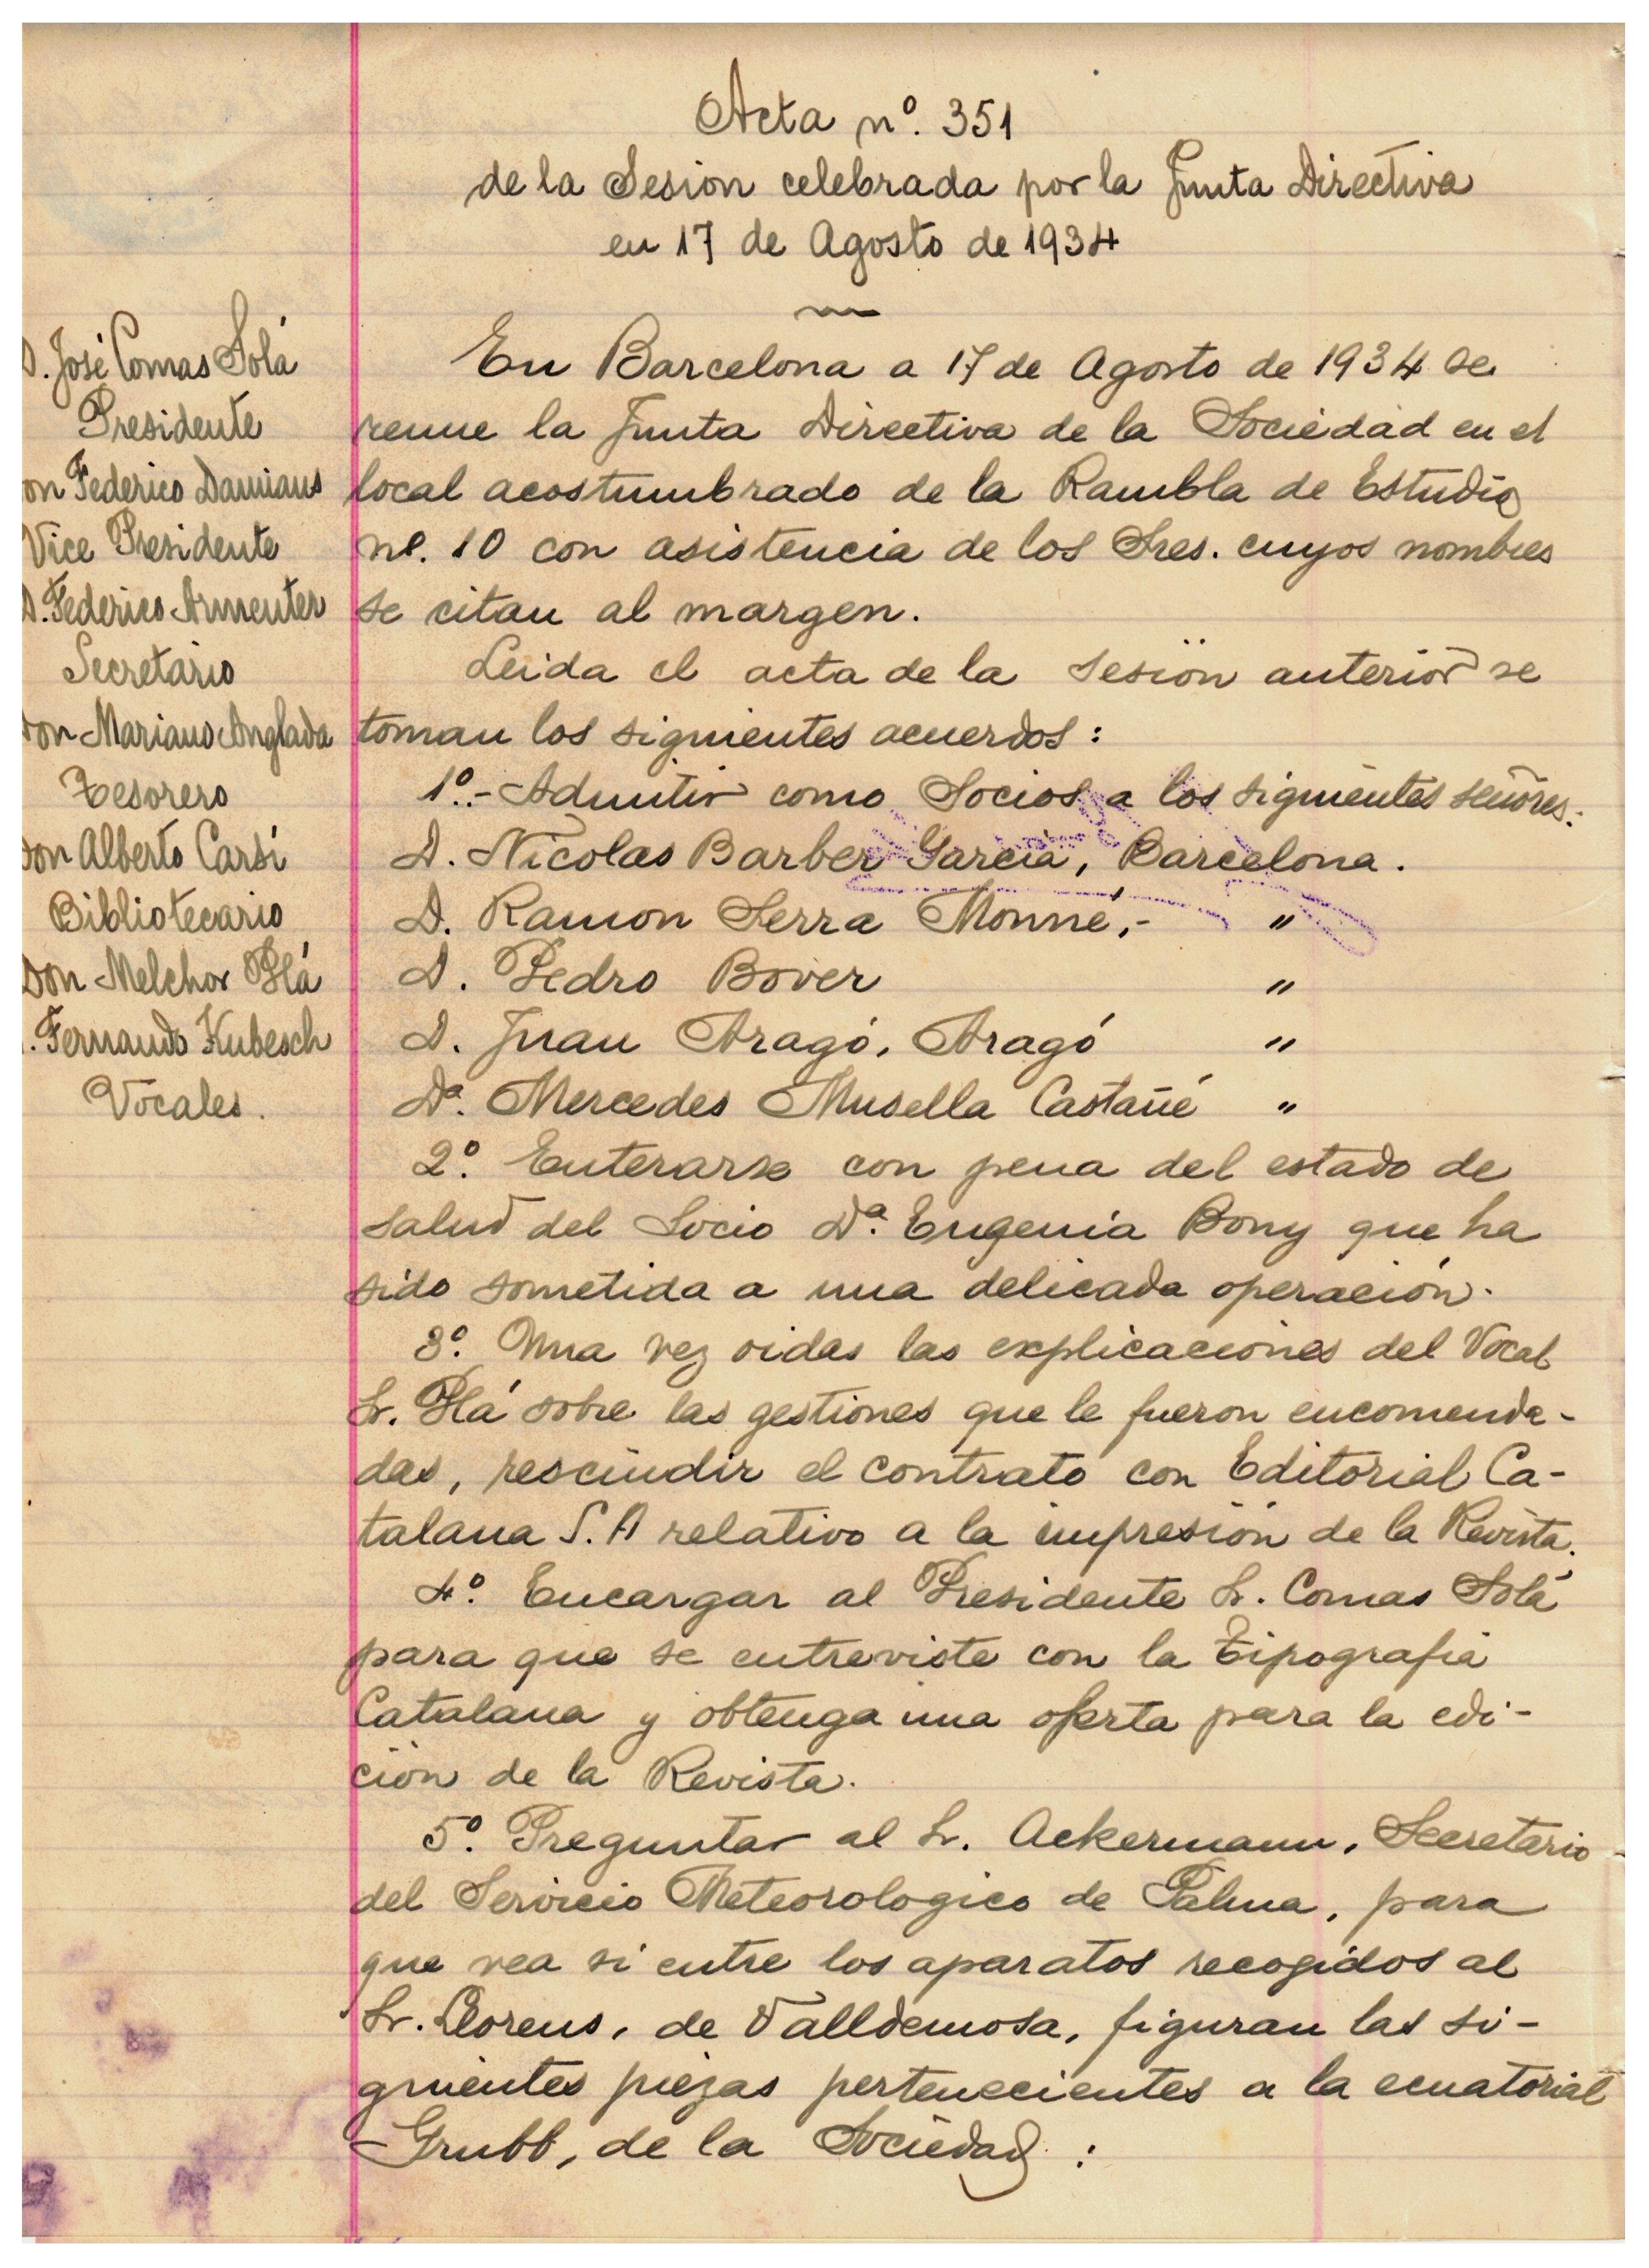 Acta nº. 351
de la Sesion celebrada por la Junta Directiva
en 17 de Agosto de 1934
D. José Comas Solá
Presidente
on Federico Damians
Vice Presidente
D. Federico Armenter
Secretario
Don Mariano Anglada
Tesorero
Don Alberto Carsí
Bibliotecario
Don Melchor Plá
. Fernando Kubesch
Vocales.
En Barcelona a 17 de Agosto de 1934 se
reune la Junta Directiva de la Sociedad en el
local acostumbrado de la Rambla de Estudio
nº. 10 con asistencia de los Sres. cuyos nombres
se citan al margen.
Leida el acta de la sesión anterior se
toman los siguientes acuerdos:
1º.- Admitir como Socios a los siguientes señores:
D. Nicolas Barber Garcia, Barcelona.
D. Ramon Serra Monné,- "
D. Pedro Bover "
D. Juan Aragó, Aragó "
Dª. Mercedes Musella Castañé "
2º. Enterarse con pena del estado de
salud del Socio Dª. Eugenia Bony que ha
sido sometida a una delicada operación.
3º. Una vez oidas las explicaciones del Vocal
Sr. Plá sobre las gestiones que le fueron encomenda-
das, rescindir el contrato con Editorial Ca-
talana S. A relativo a la impresión de la Revista.
4º. Encargar al Presidente Sr. Comas Solá
para que se entreviste con la Tipografia
Catalana y obtenga una oferta para la edi-
ción de la Revista.
5º. Preguntar al Sr. Ackermann, Secretario
del Servicio Meteorologico de Palma, para
que vea si entre los aparatos recogidos al
Sr. Llorens, de Valldemosa, figuran las si-
guientes piezas pertenecientes a la ecuatorial
Grubb, de la Sociedad: